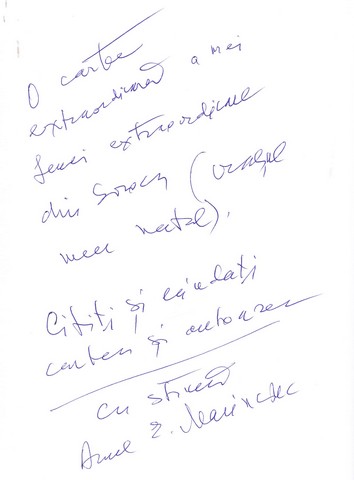 O carte
extraordinară a unei
femei extraordinare
din Soroca (orașul
meu natal).
Citiți și lăudați
cartea și autoarea
cu stimă
E.